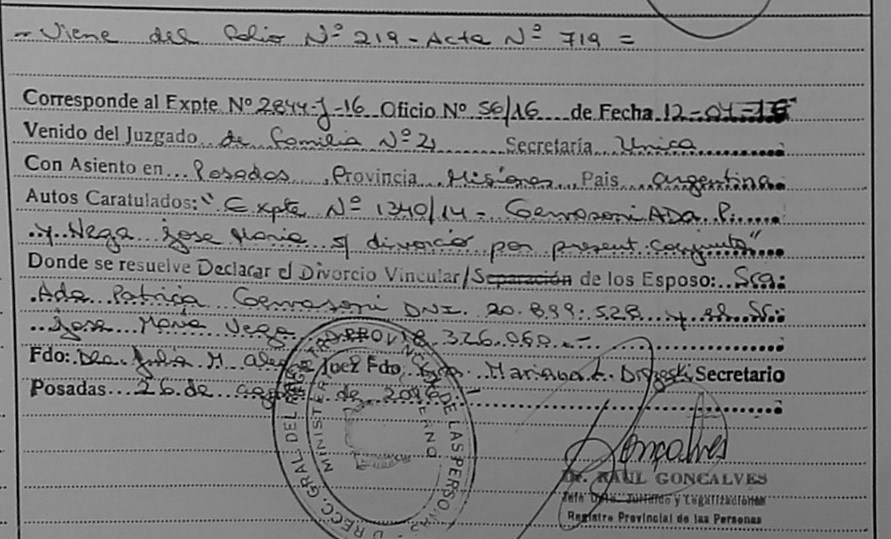 - Viene del folio Nº 219 - Acta Nº 719 =
Corresponde al Expte Nº 2844-J-16 Oficio Nº 56/16 de Fecha 12-04-16
Venido del Juzgado de Familia Nº 2, Secretaría Unica
Con Asiento en Posadas, Provincia Misiones, Pais argentina
Autos Caratulados: "Expte Nº 1340/14 - Gervasoni ADA P.
y Vega Jose Maria s/ divorcio por present. conjunta"
Donde se resuelve Declarar el Divorcio Vincular/Separación de los Esposo: Sra.
Ada Patricia Gervasoni DNI. 20.899.528 y el Sr.
Jose Maria Vega
Fdo: Dra. Julia M. Juez Fdo. Mariana L. Secretario
Posadas 26 de de
DIRECC. GRAL DEL REGISTRO PROV. DE LAS PERSONAS
Goncalves
Dr. RAUL GONCALVES
Jefe Dpto. Jurídico y Legalizaciones
Registro Provincial de las Personas